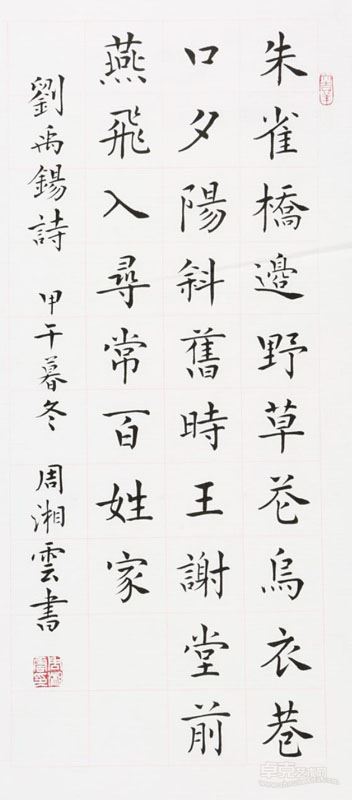 朱雀橋邊野草花烏衣巷
口夕陽斜舊時王謝堂前
燕飛入尋常百姓家
劉禹錫詩 甲午暮冬 周湘雲書
卓克艺术网